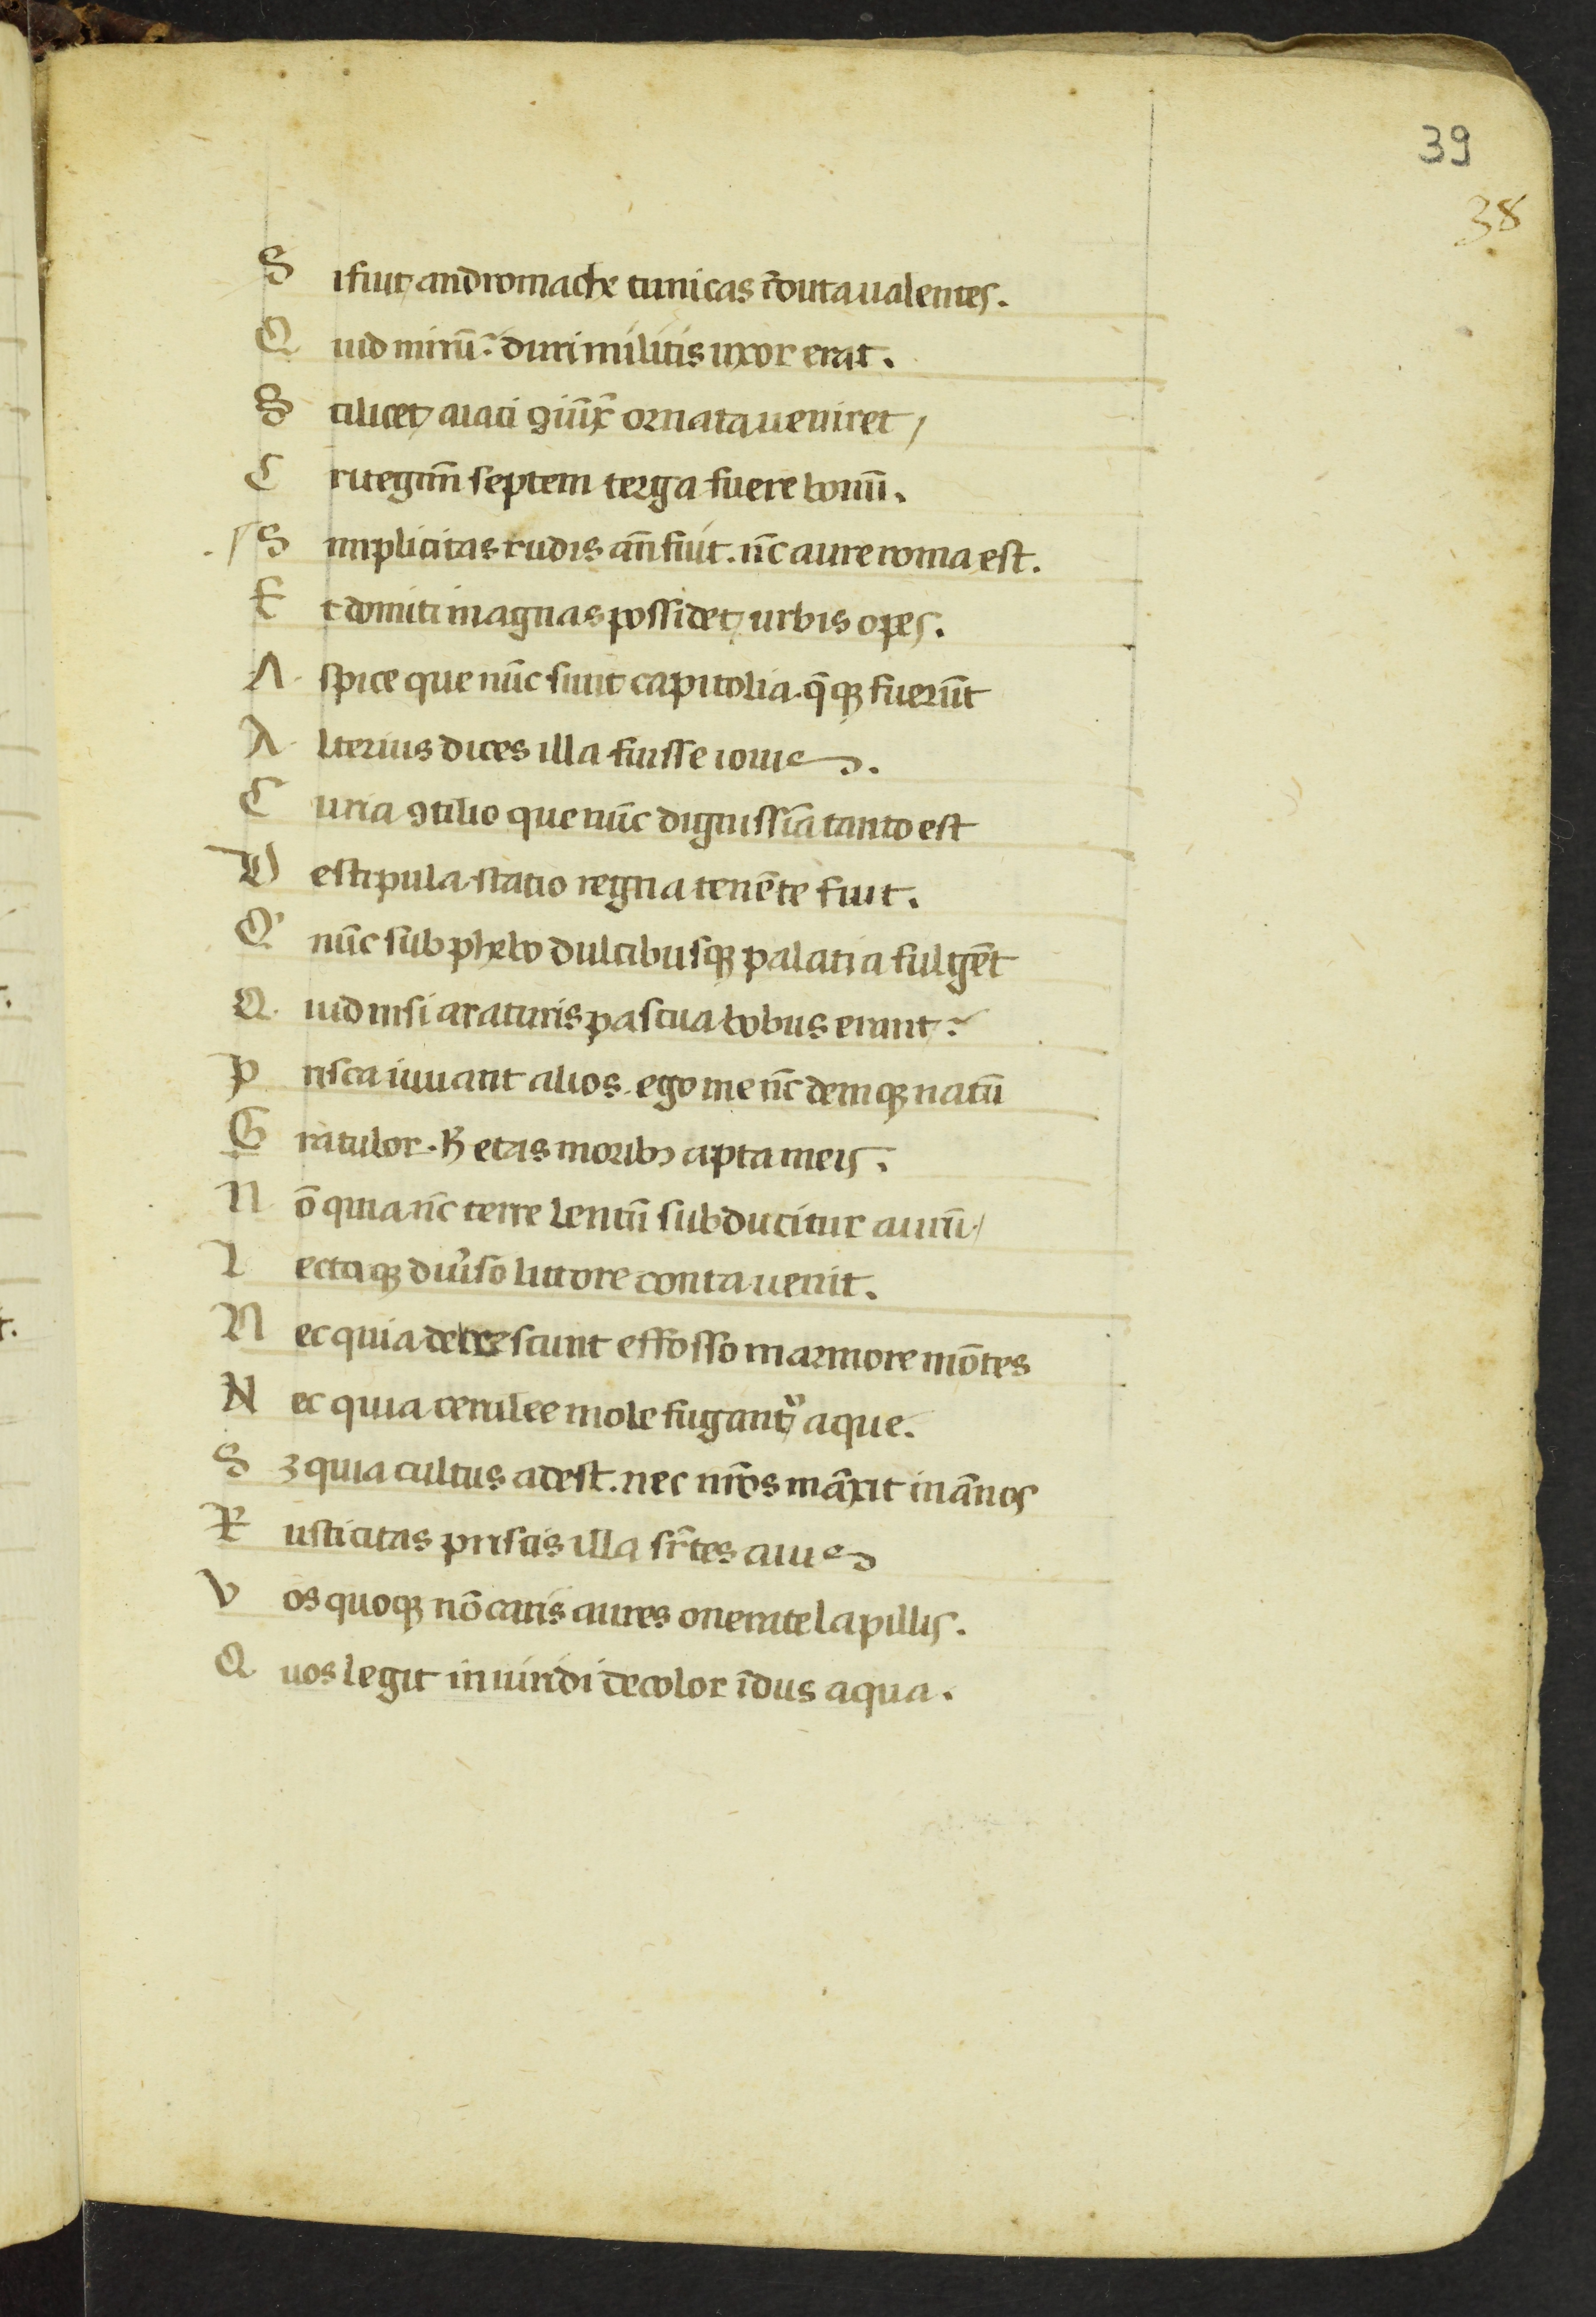 39
38
S ifuit andromache tunicas īdutaualentes.
Q uid mirū? duri militis uxor erat.
S cilicet aiaci ꝯiūx̄ ornata ueniret /
C ui tegim̄ septem terga fuere boum̄.
S implicitas rudis an̄ fuit. nc̄ aure roma est.
E t domiti magnas possidet urbis opes.
A spice que nūc sunt capitolia. q̄qꝫ fuerūt
A lterius dices illa fuisse iouis.
C uria ꝯcilio que nūc dignissīa tanto est
D e stipula statio regna tenēte fuit.
Q nūc sub phebo dulcibusqꝫ palatia fulgēt
Q uid nisi araturis pascua bobus erant?
P risca iuuant alios. ego me nc̄ deniqꝫ natū
G ratulor. h̄ etas moribꝫ apta meis.
N ō quia nc̄ terre lentū subducitur aurū /
L ectaqꝫ diu͛so littore conta uenit.
N ec quia decrescunt effosso marmore mōtes
N ec quia cerulee mole fugant᷑ aque.
S ꝫ quia cultus adest. nec nr̄os māxit in ānos
R usticitas priscis illa sr̄tes auis
V os quoqꝫ nō caris aures onerate lapillis.
Q uos legit in uiridi decolor īdus aqua.